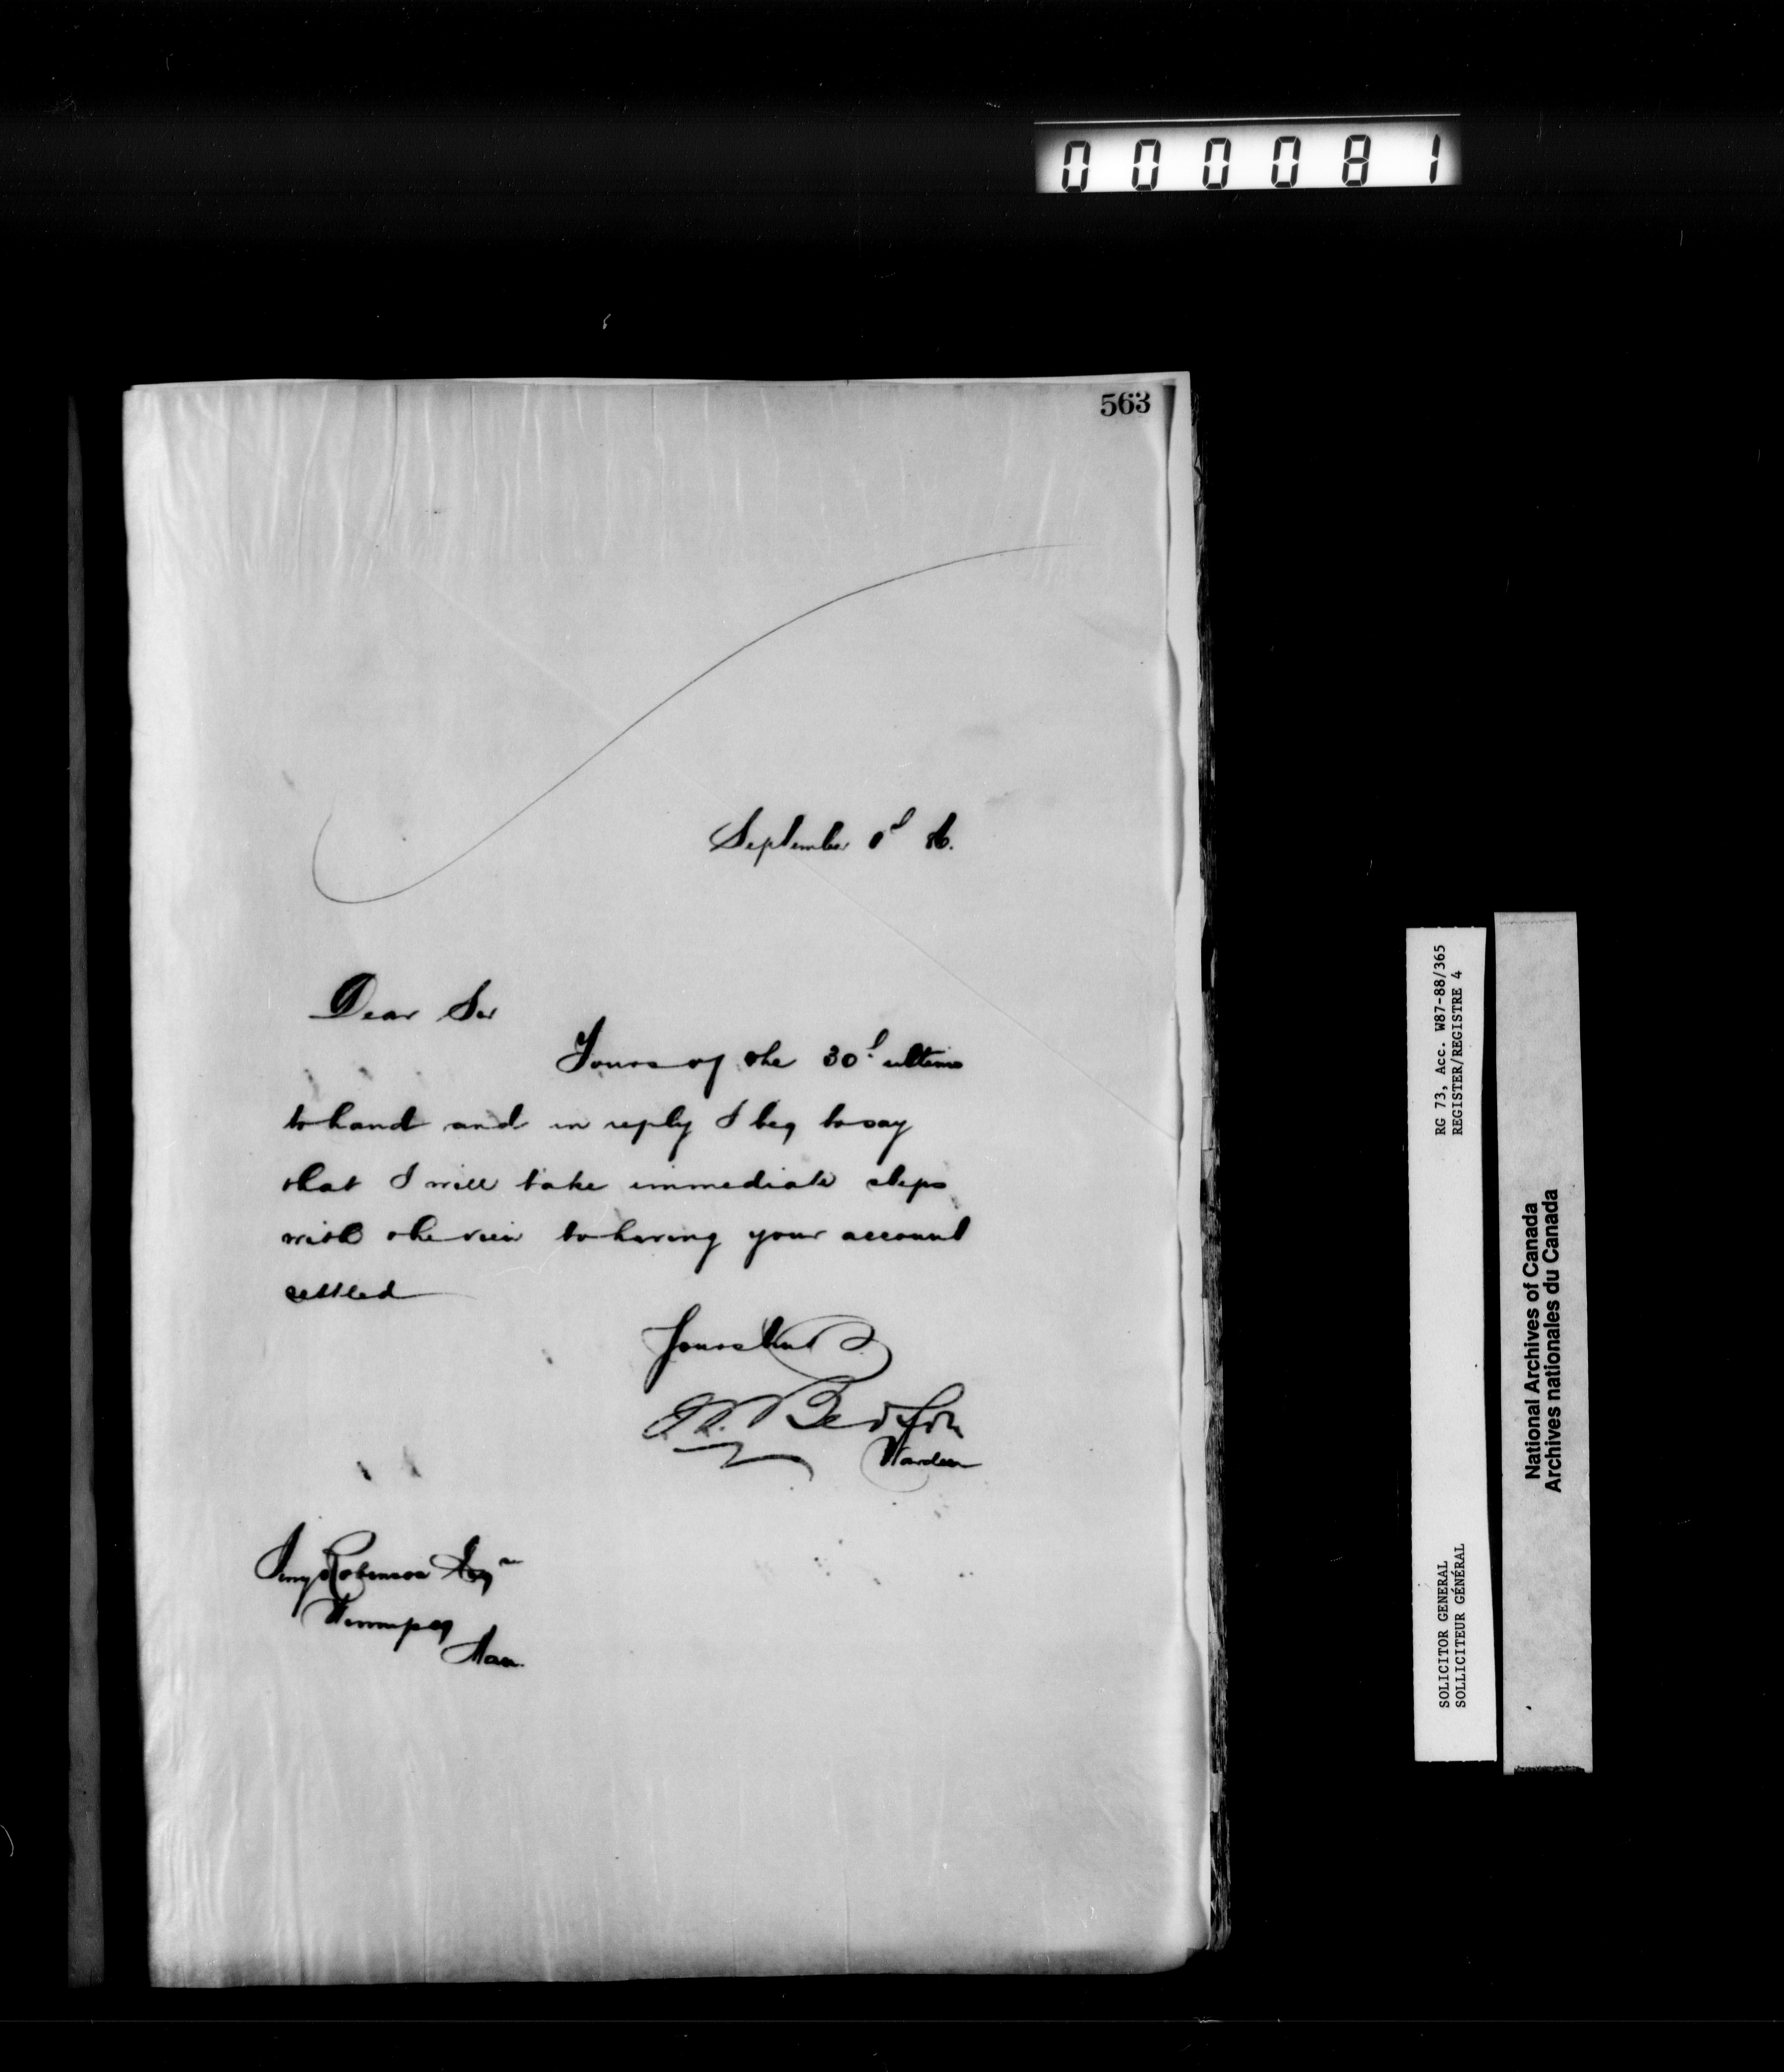 000081
563
September 1st 86.
Dear Sir
Yours of the 30th ultimo
to hand and in reply I beg to say
that I will take immediate steps
with the view to having your account
settled
Yours truly
Bedson
Warden
Robinson Esqre
Winnipeg
Man.
RG 73, Acc. W87-88/365
REGISTER/REGISTRE 4
SOLICITOR GENERAL
SOLLICITEUR GÉNÉRAL
National Archives of Canada
Archives nationales du Canada